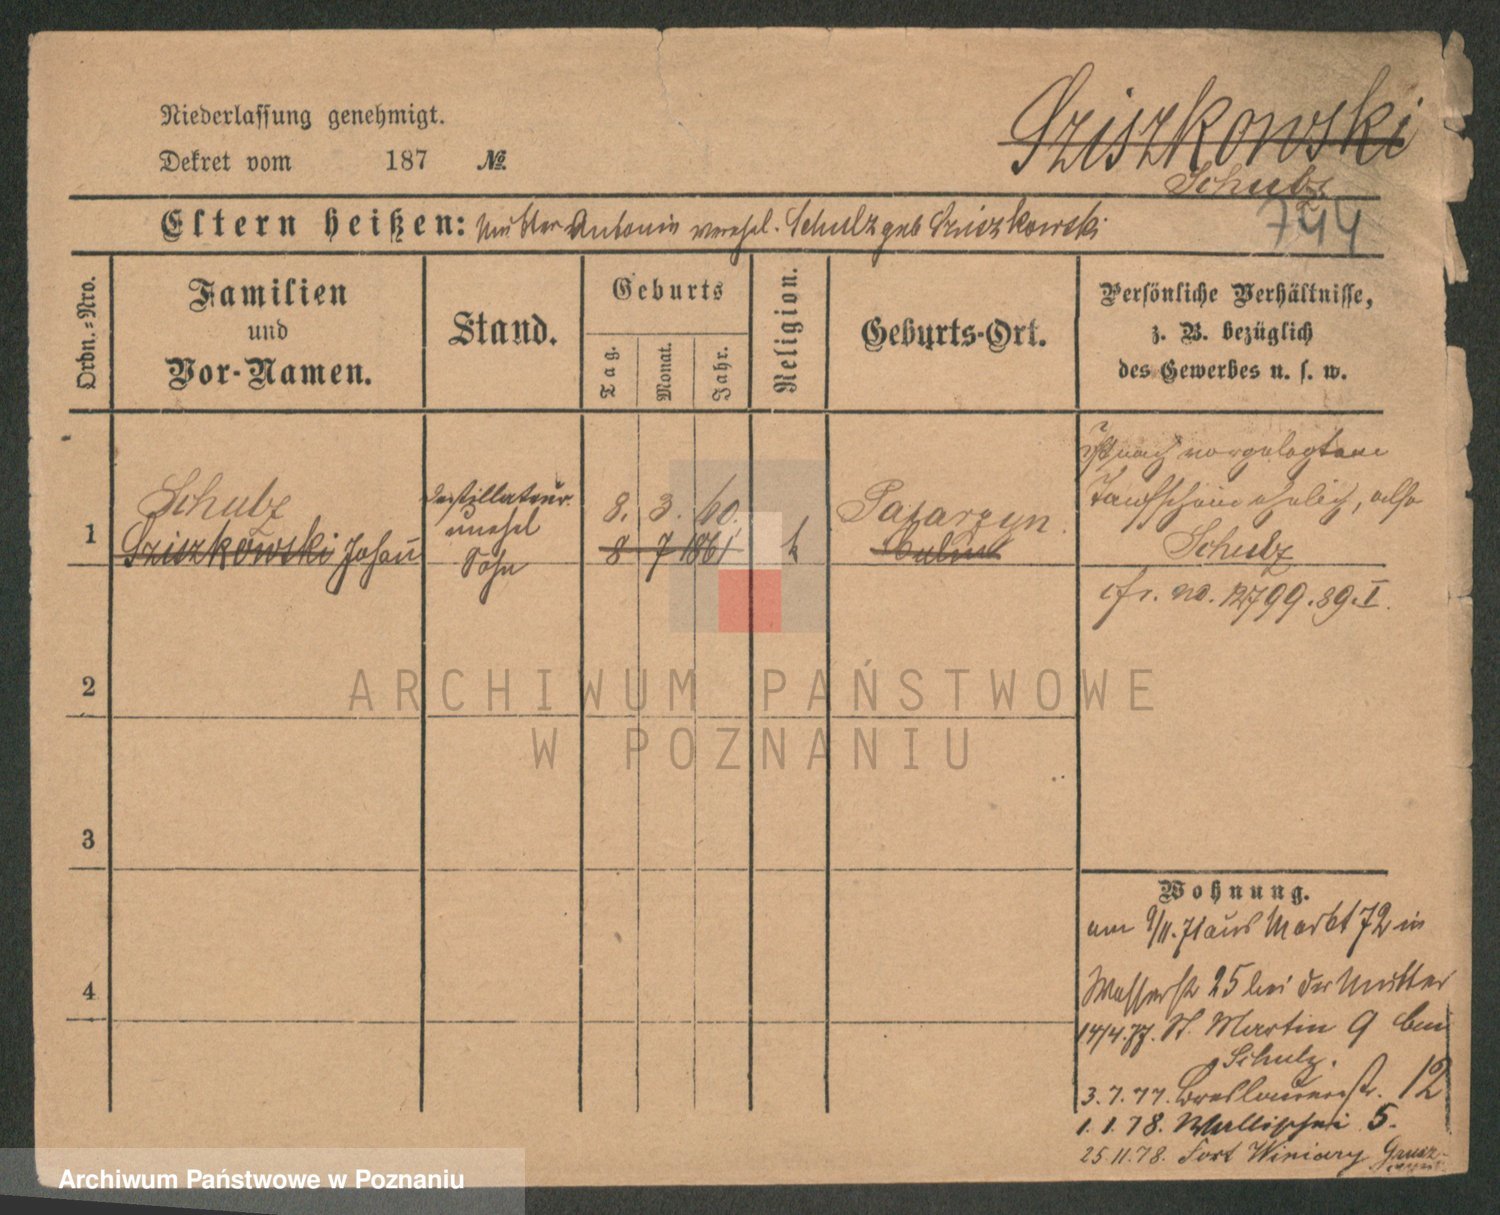 Niederlassung genehmigt.
Dekret vom 187 №
Sziszkowski
Schulz
744
Eltern heißen: Mutter Antonie verehel. Schulz geb Sziszkowski
Ordn.-Nro.
Familien
und
Vor-Namen.
Stand.
Geburts
Tag.
Monat.
Jahr.
Religion.
Geburts-Ort.
Persönliche Verhältnisse,
z. B. bezüglich
des Gewerbes u. s. w.
1
Schulz
Sziszkowski Johann
Destillateur
unehel
Sohn
8. 3. 60.
8 7 1861
k
Culm
Ist nach vorgelegtem
Taufschein ehelich, also
Schulz
cfr. no. 12799.89.I.
2
3
4
Wohnung.
am 9/11.71 aus Markt 72 in
Wasserstr 25 bei der Mutter
14/4.77. St. Martin 9 bei
Schulz.
3.7.77. Breslauerstr. 12
1.1.78. Wallischei 5.
25.11.78. Fort Winiary
ARCHIWUM PAŃSTWOWE
W POZNANIU
Archiwum Państwowe w Poznaniu